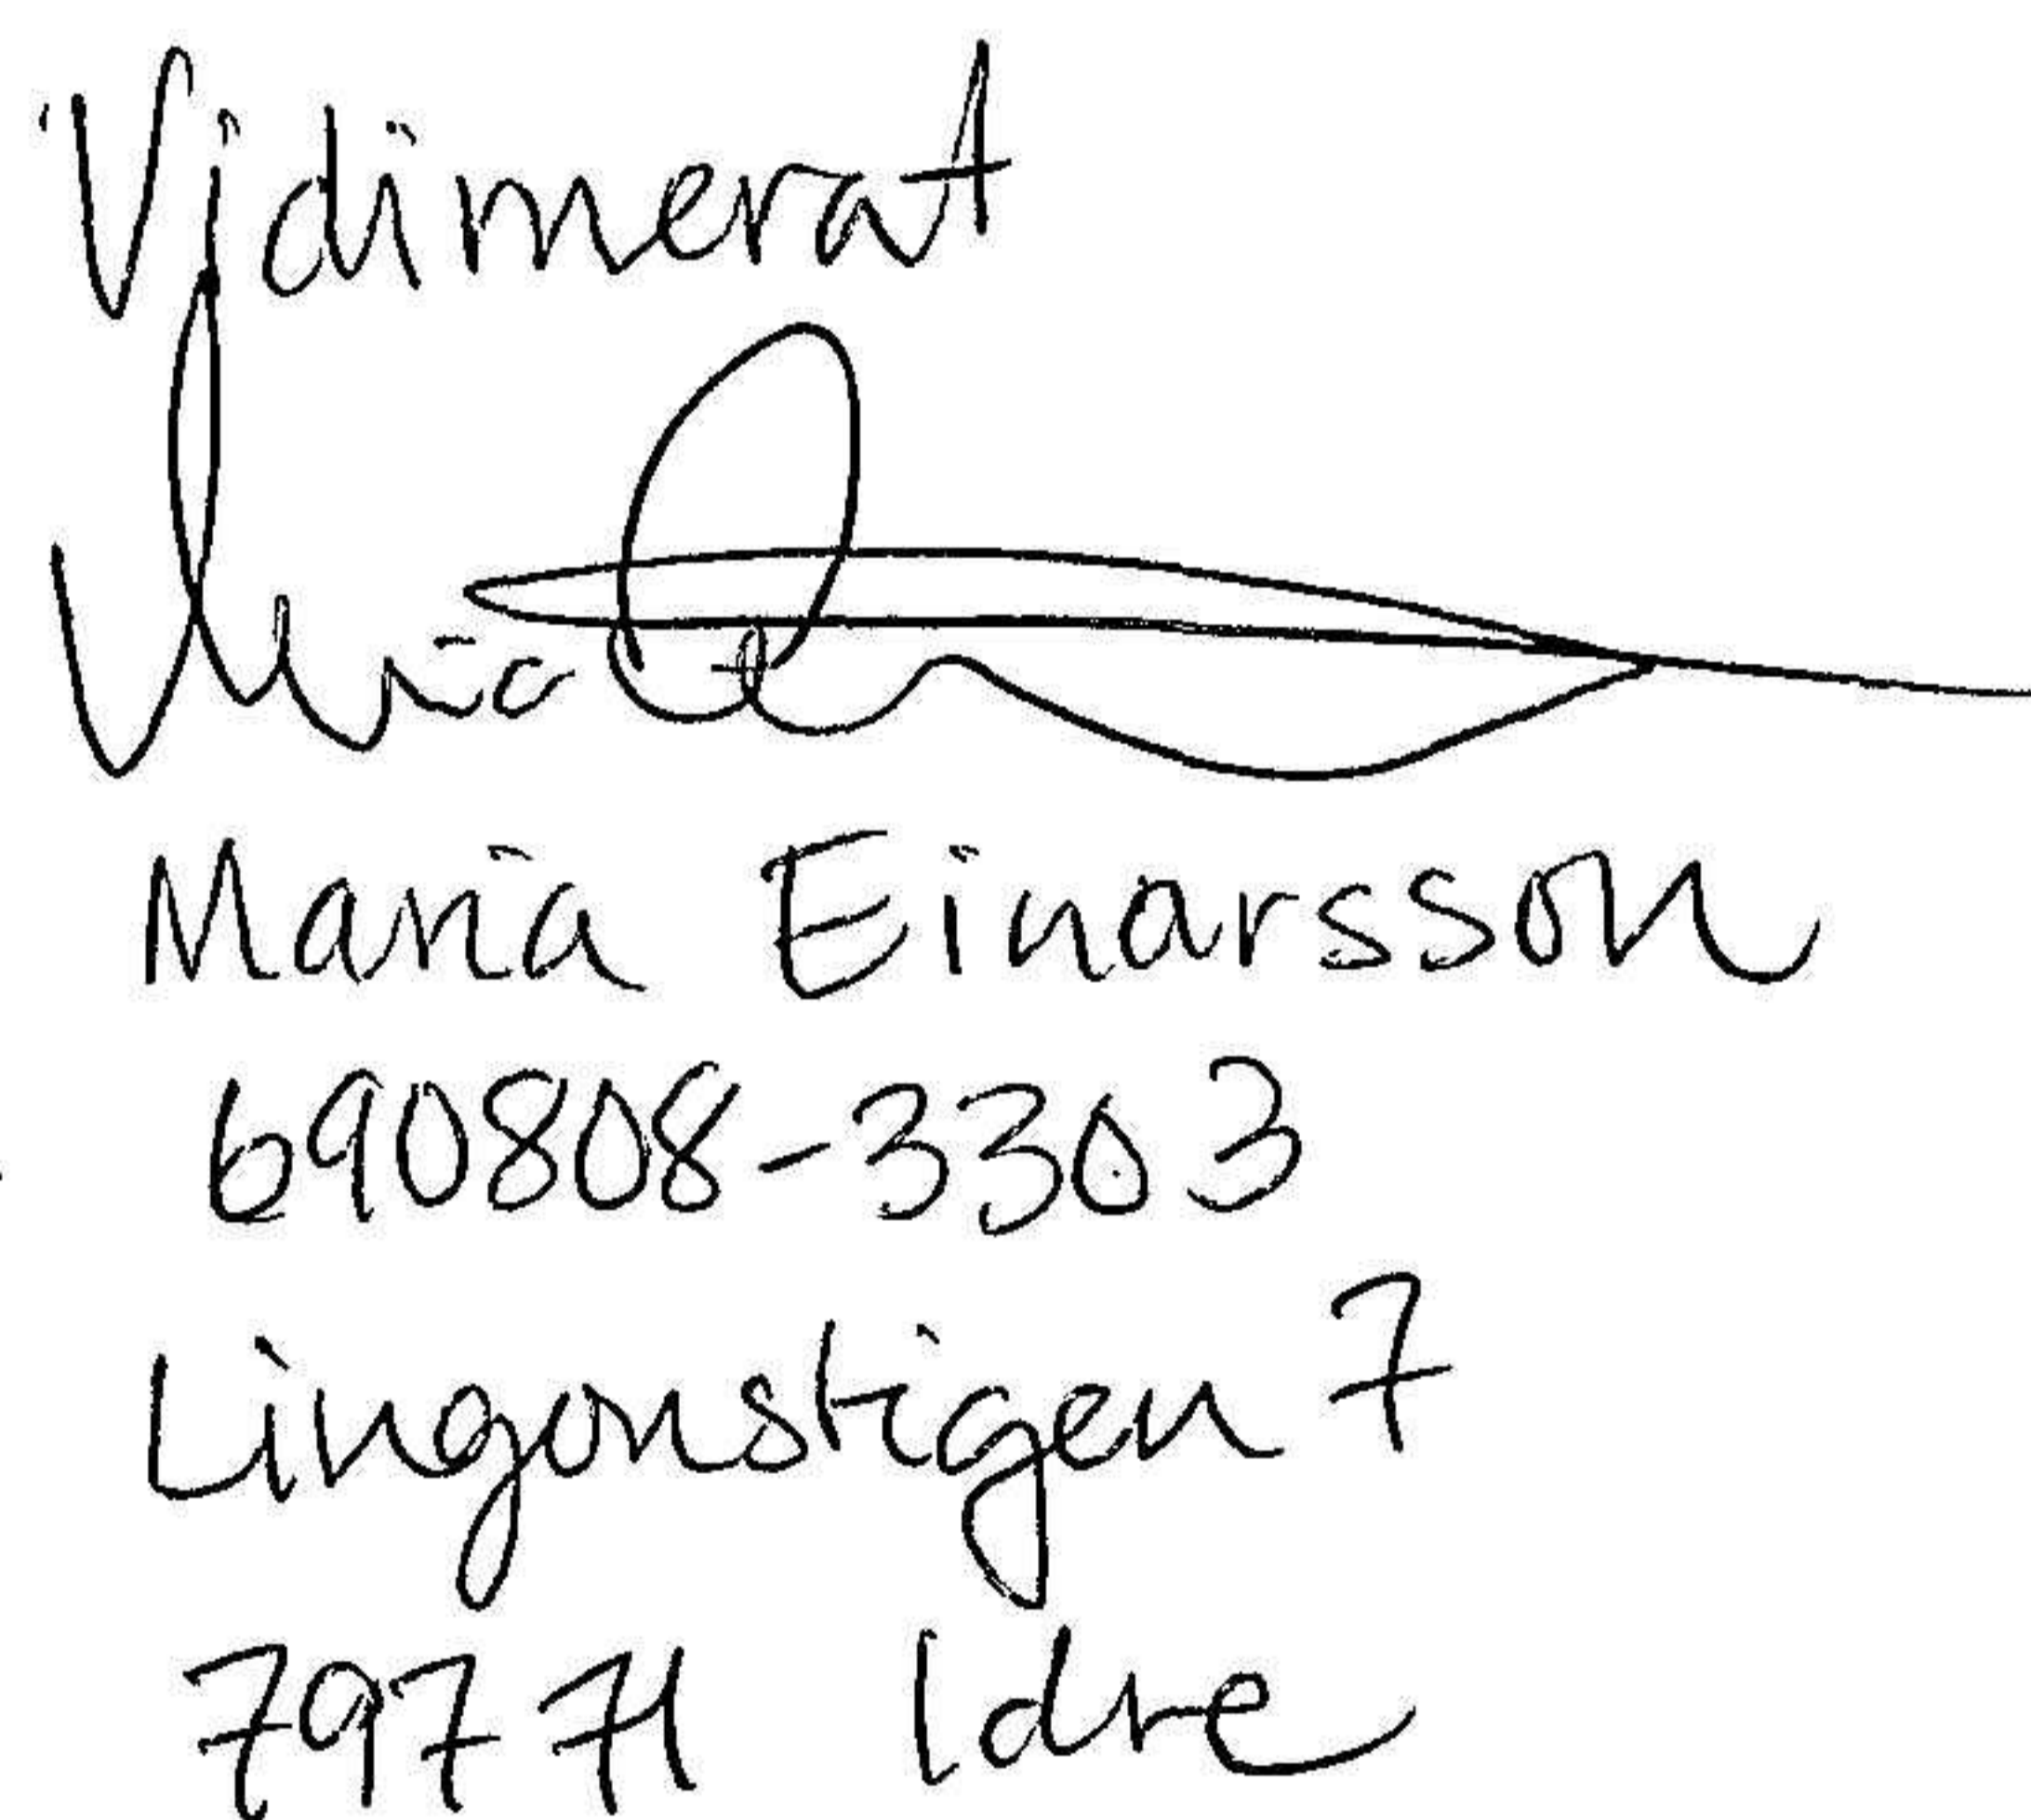 Vidimerat
Maria Einarsson
690808-3303
Lingonstigen 7
79771 Idre